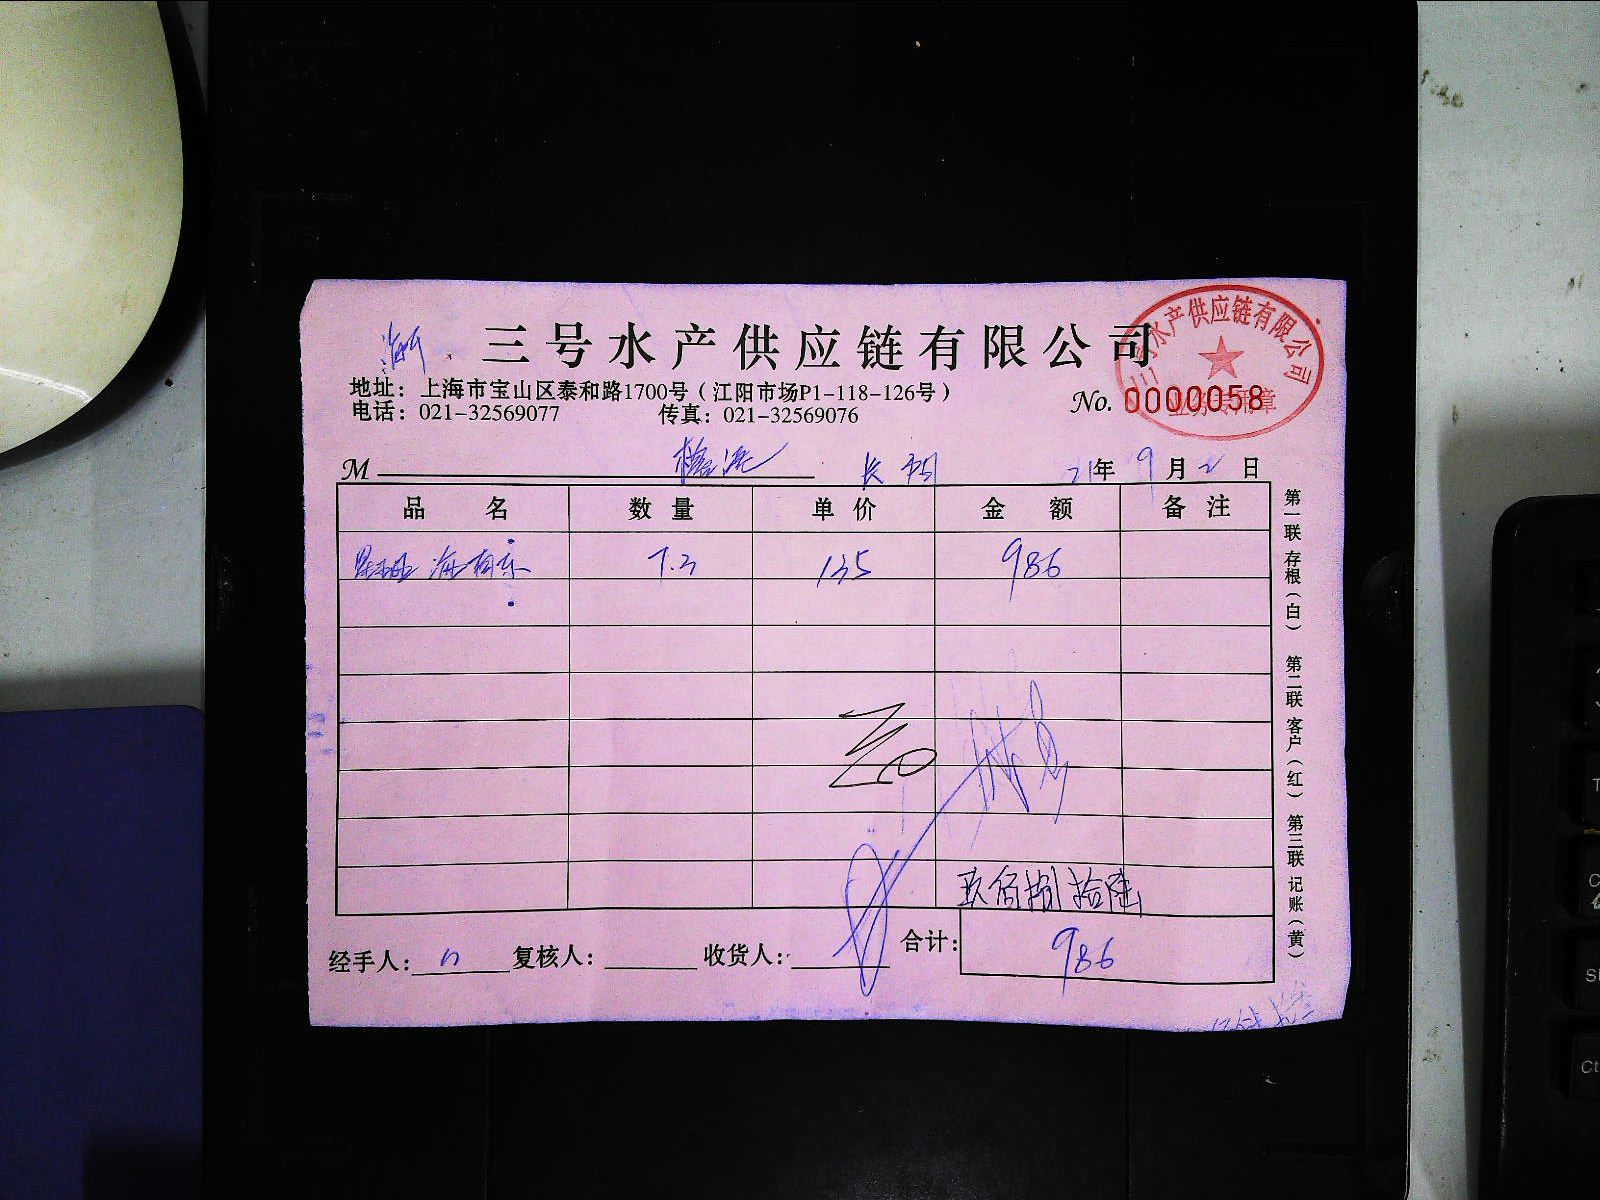 三号水产供应链有限公司
地址：上海市宝山区泰和路1700号（江阳市场P1-118-126号）
电话：021-32569077 传真：021-32569076
No. 0000058
号水产供应链有限公司
业务专用章
M 21年 9月 2日
品名 数量 单价 金额 备注
7.3 135 986
玖佰捌拾陆
经手人： 复核人： 收货人： 合计： 986
第一联 存根（白） 第二联 客户（红） 第三联 记账（黄）